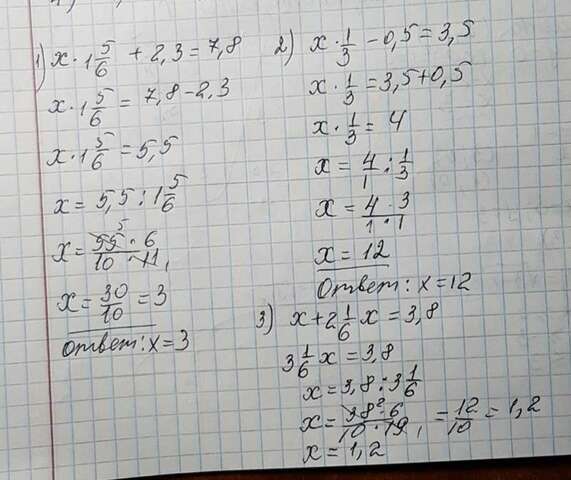 1) x · 1 5/6 + 2,3 = 7,8
x · 1 5/6 = 7,8 - 2,3
x · 1 5/6 = 5,5
x = 5,5 : 1 5/6
x = 55 5 · 6 / 10 · 11 1
x = 30/10 = 3
Ответ: x = 3
2) x · 1/3 - 0,5 = 3,5
x · 1/3 = 3,5 + 0,5
x · 1/3 = 4
x = 4/1 : 1/3
x = 4 · 3 / 1 · 1
x = 12
Ответ: x = 12
3) x + 2 1/6 x = 3,8
3 1/6 x = 3,8
x = 3,8 : 3 1/6
x = 38 2 · 6 / 10 · 19 1 = 12/10 = 1,2
x = 1,2